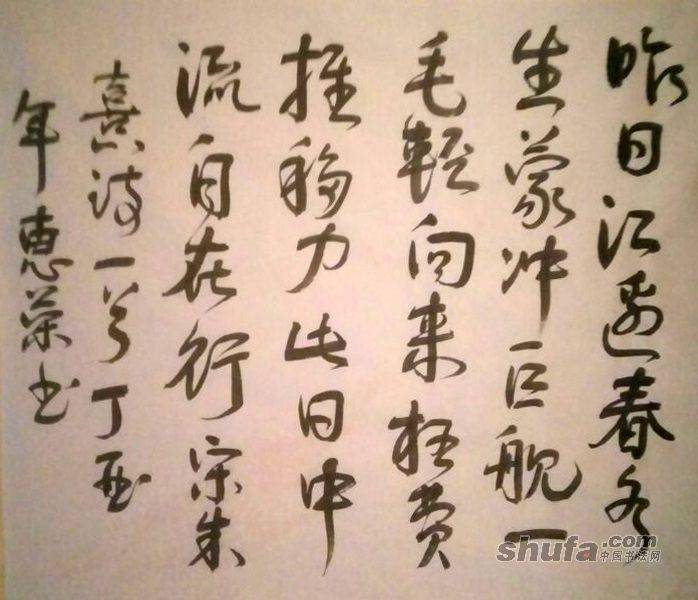 昨日江邊春水
生蒙冲巨舰一
毛輕向来枉费
推移力此日中
流自在行宋朱
熹诗一首丁酉
年惠荣书
shufa.com
中国书法网